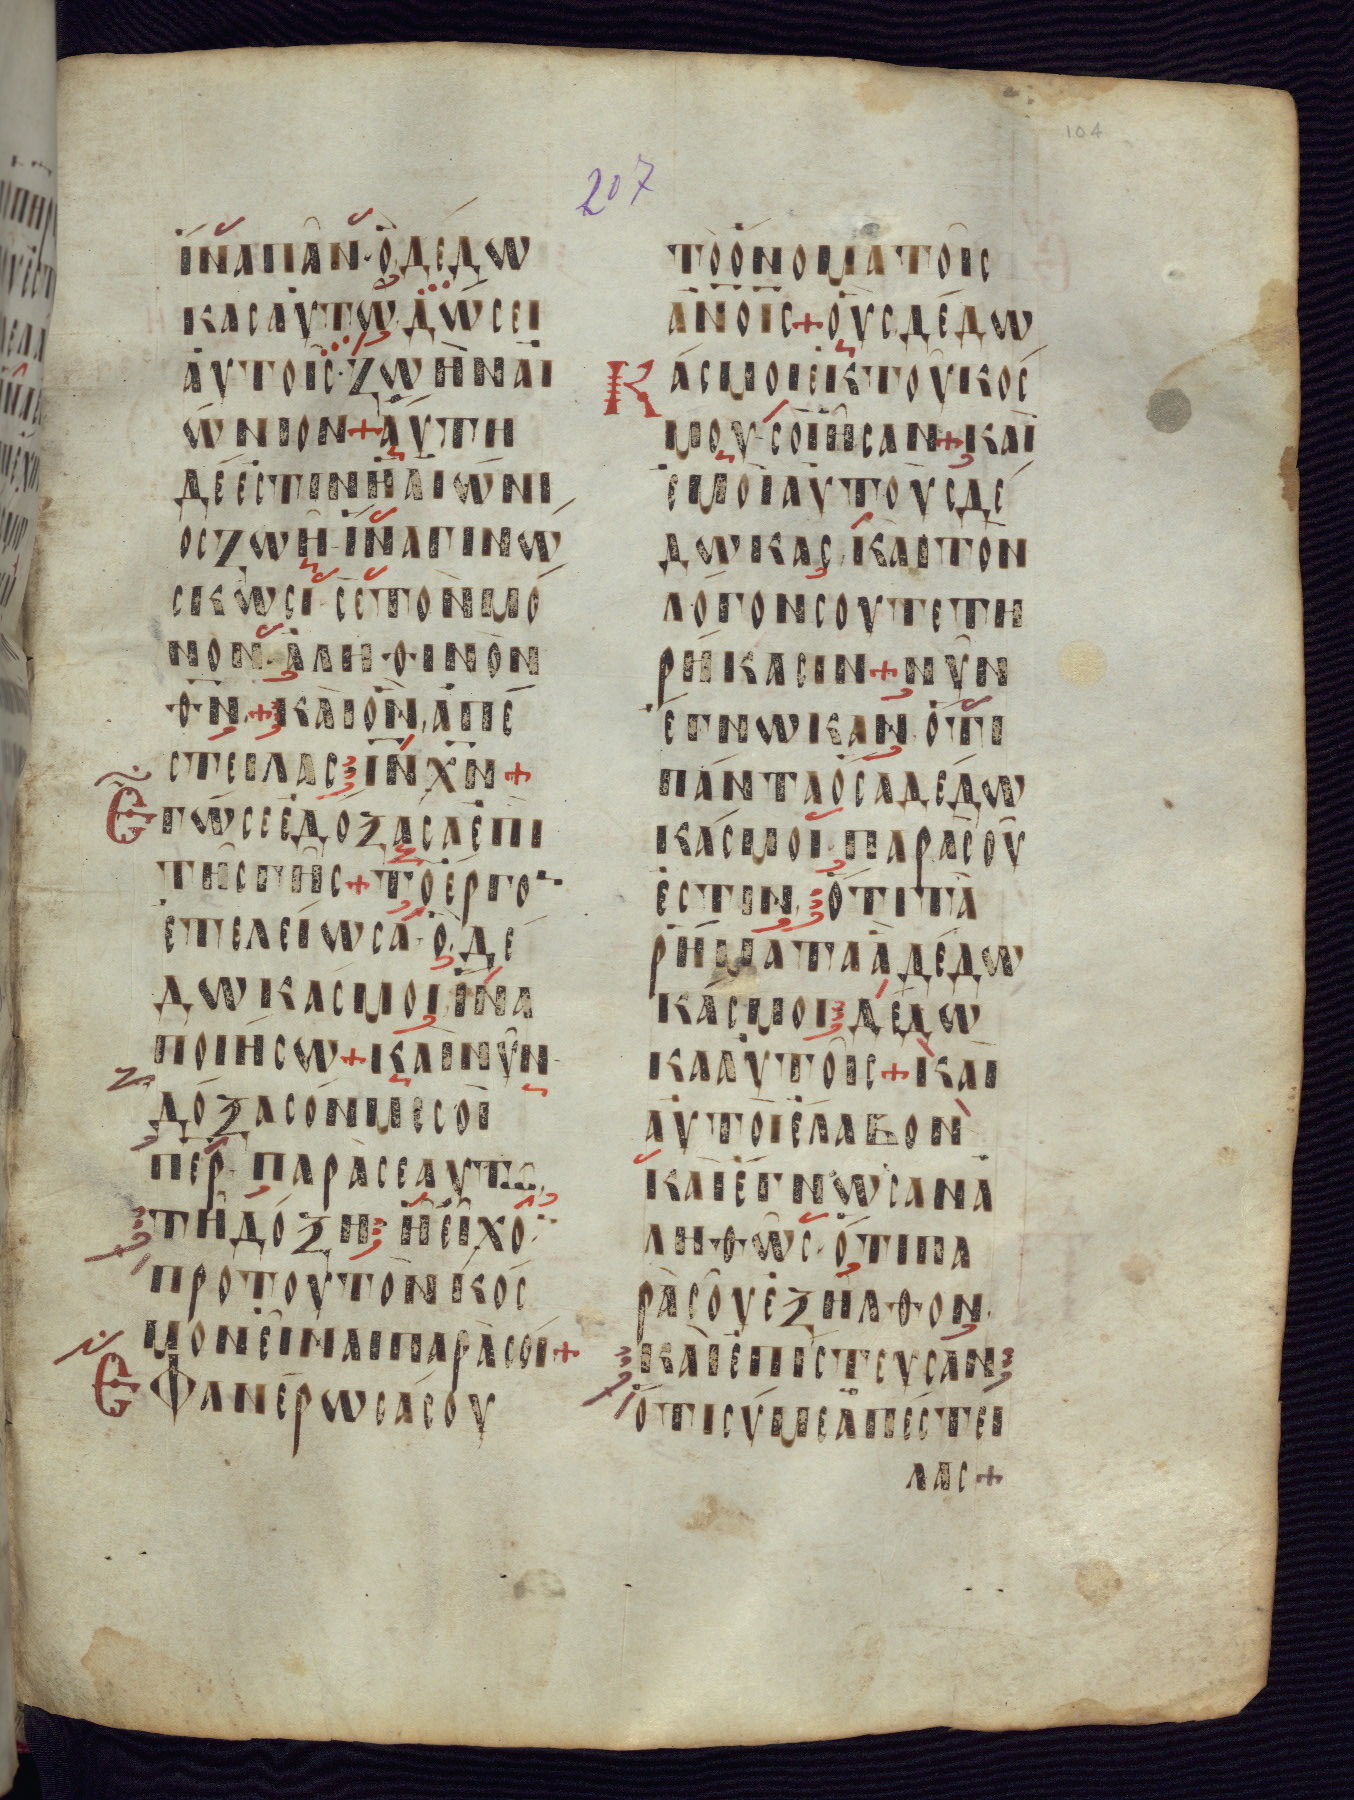 104
207
ἵνα πᾶν ὃ δέδω
κας αὐτῷ δώσει
αὐτοῖς ζωὴν αἰ
ώνιον + αὕτη
δέ ἐστιν ἡ αἰώνι
ος ζωὴ ἵνα γινώ
σκωσι σὲ τὸν μό
νον ἀληθινὸν
θν + καὶ ὃν ἀπέ
στειλας ιν χν +
Ἐγώ σε ἐδόξασα ἐπὶ
τῆς γῆς + τὸ ἔργο
ἐτελείωσα ὃ δέ
δωκάς μοι ἵνα
ποιήσω + καὶ νῦν
δόξασόν με σοὶ
περ παρὰ σεαυτω
τῆ δόξη ἧ εἶχο
προ τοῦ τὸν κόσ
μον εἶναι παρὰ σοί +
Ἐφανέρωσά σου
τὸ ὄνομα τοῖς
ανοις + οὓς δέδω
Κάς μοι ἐκ τοῦ κόσ
μου σοὶ ἦσαν + καὶ
ἐμοὶ αὐτοὺς δέ
δωκας καὶ τὸν
λόγον σου τετη
ρήκασιν + νῦν
ἔγνωκαν ὅτι
πάντα ὅσα δέδω
κάς μοι παρὰ σοῦ
ἐστιν ὅτι τὰ
ρήματα ἃ δέδω
κάς μοι δέδω
κα αὐτοῖς + καὶ
αὐτοὶ ἔλαβον
καὶ ἔγνωσαν ἀ
ληθῶς ὅτι πα
ρὰ σοῦ ἐξῆλθον
καὶ ἐπίστευσαν
ὅτι σύ με ἀπέστει
λας +